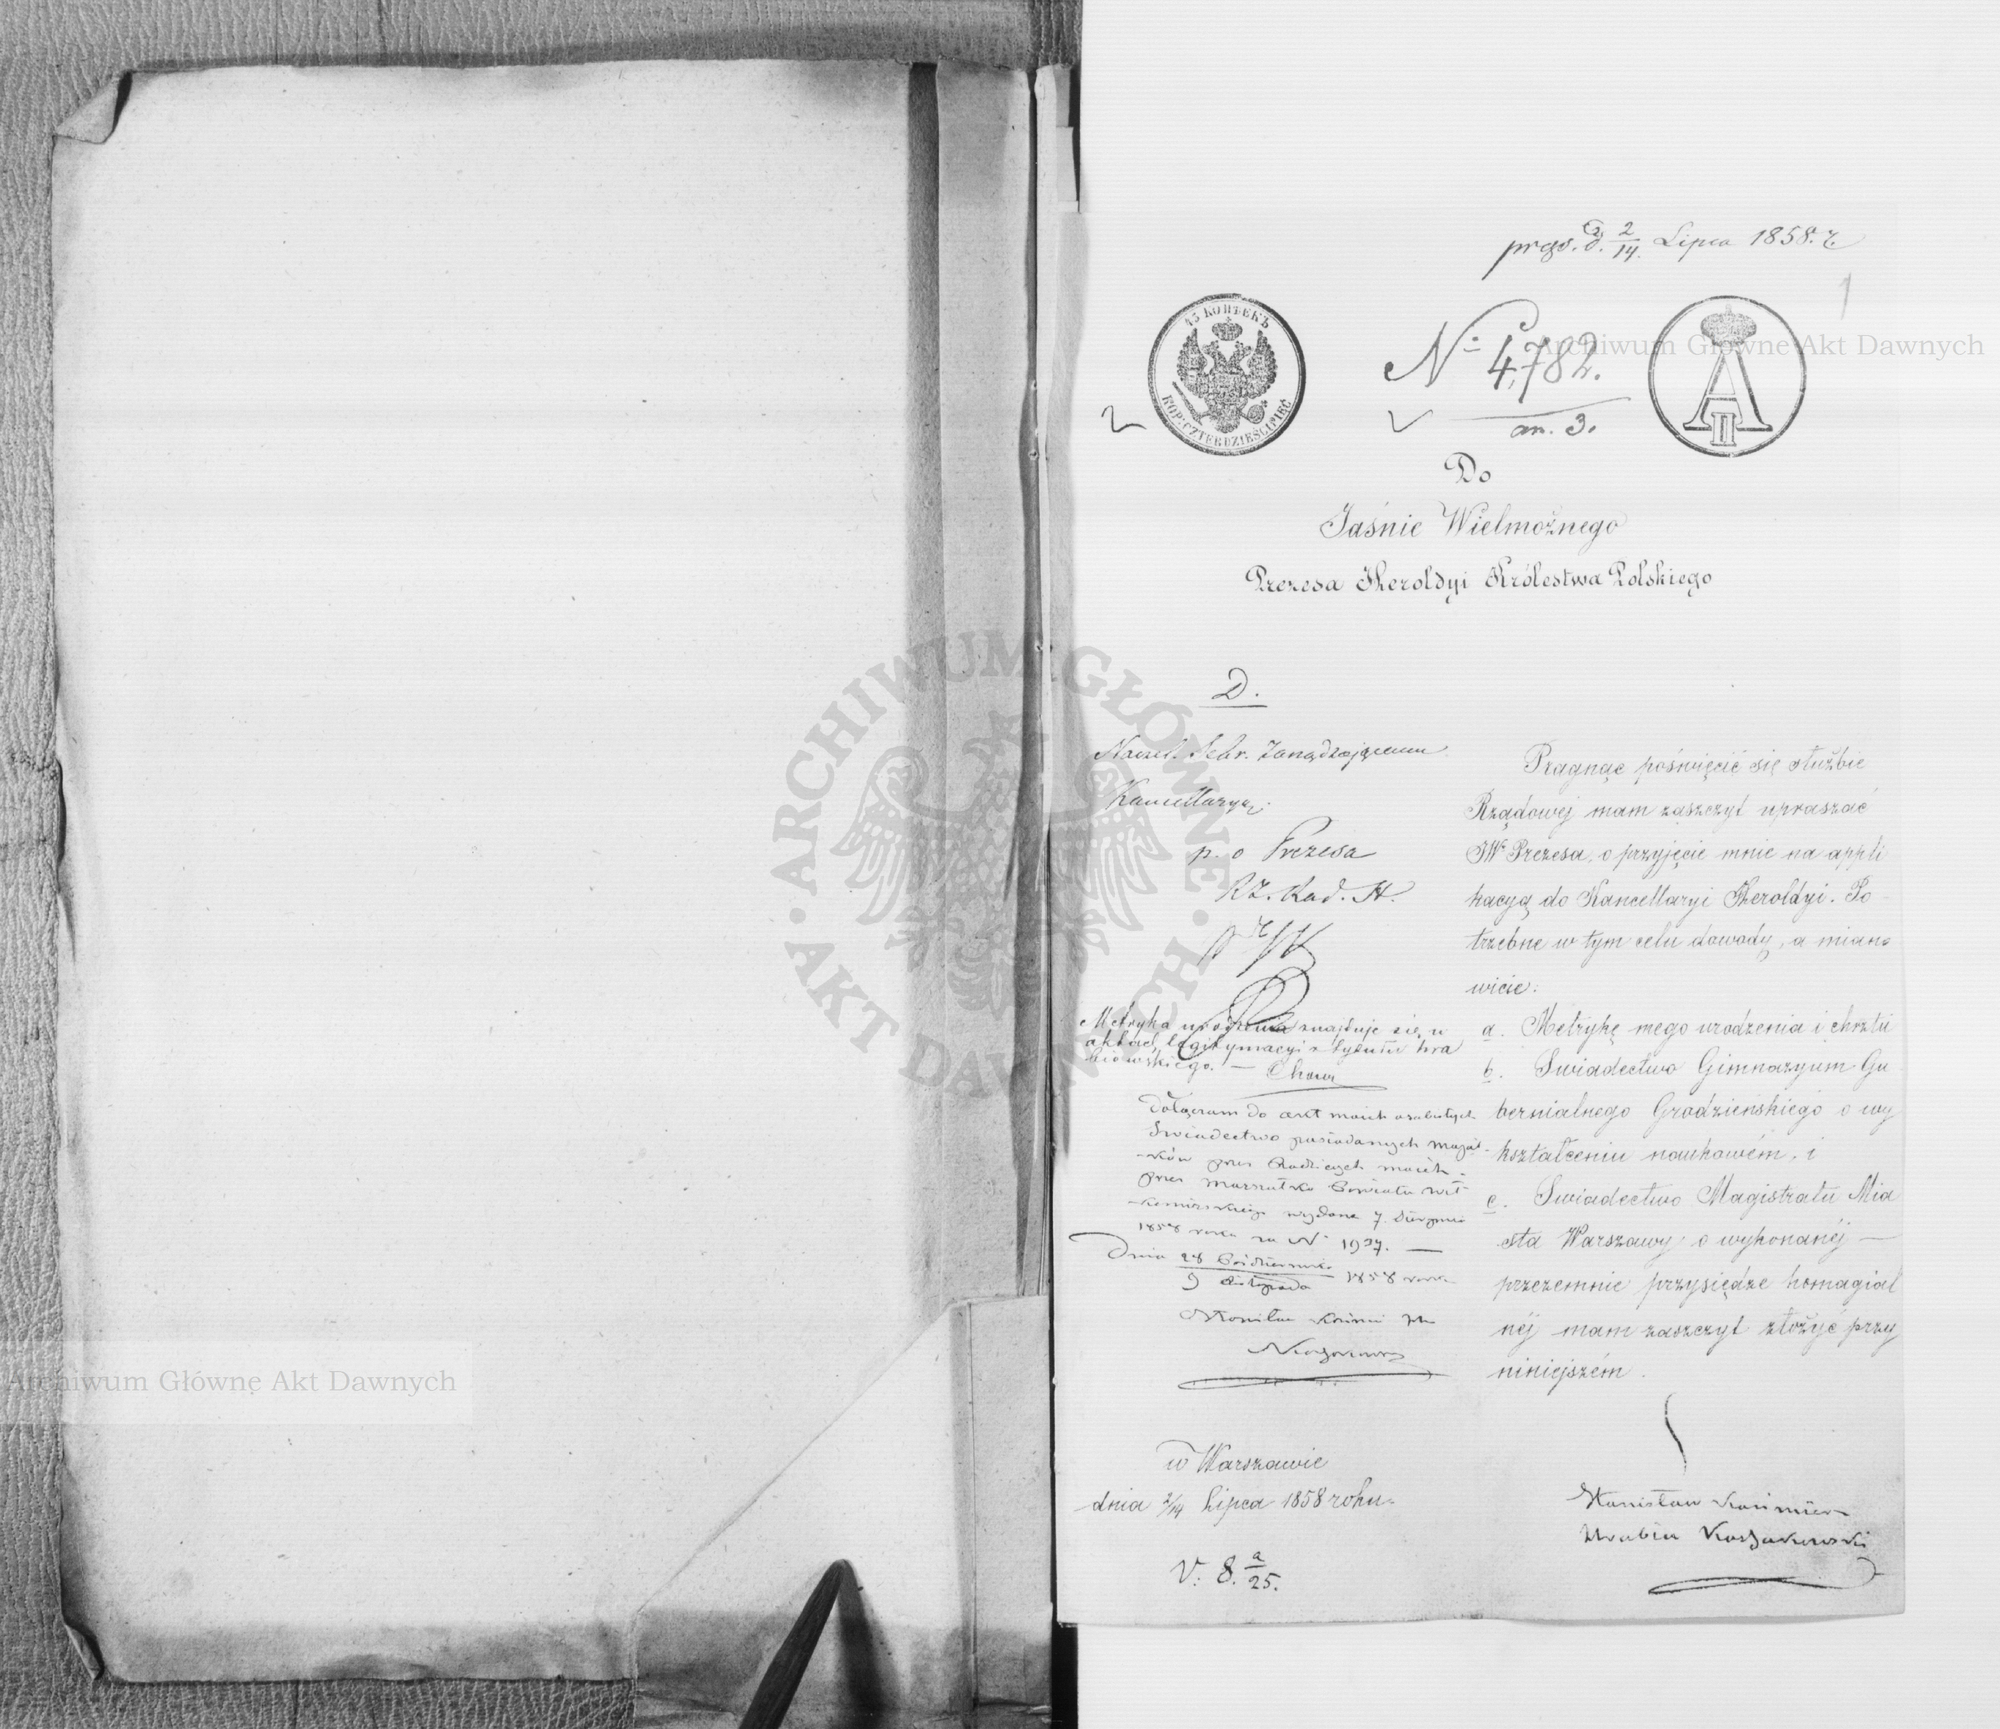 d. 2/14. Lipca 1858. r.
1
45 КОПѢЕКЪ
KOP. CZTERDZIEŚCI PIĘĆ
№ 4,782.
an. 3.
A II
Do
Jaśnie Wielmożnego
Prezesa Heroldyi Królestwa Polskiego
D.
Naczel. Sekr. Zarządzającemu
Kancellaryą.
p. o Prezesa
Rz. Rad. St.
Metryka urodzenia znajduje się w
aktach legitymacyi z tytułu hra
biowskiego. —
Dołączam do akt moich osobistych
Świadectwo posiadanych mająt-
-ków przez Rodziców moich
przez Marszałka Powiatu Wił-
-komirskiego wydane 7. Sierpnia
1858 roku za № 1937. —
Dnia 28 Października / 9 Listopada 1858 roku
Stanisław Kazimi
Kossakowski
w Warszawie
dnia 2/14 Lipca 1858 roku.
V. 8. a/25.
Pragnąc poświęcić się służbie
Rządowej mam zaszczyt upraszać
JW Prezesa, o przyjęcie mnie na appli
kacyą do Kancellaryi Heroldyi. Po
trzebne w tym celu dowody, a miano
wicie:
a. Metrykę mego urodzenia i chrztu
b. Świadectwo Gimnazyum Gu
bernialnego Grodzieńskiego o wy
kształceniu naukowém, i
c. Świadectwo Magistratu Mia
sta Warszawy o wykonanéj —
przezemnie przysiędze homagial
néj mam zaszczyt złożyć przy
niniejszém.
Stanisław Kazimierz
Hrabia Kossakowski
Archiwum Główne Akt Dawnych
Archiwum Główne Akt Dawnych
ARCHIWUM GŁÓWNE · AKT DAWNYCH ·